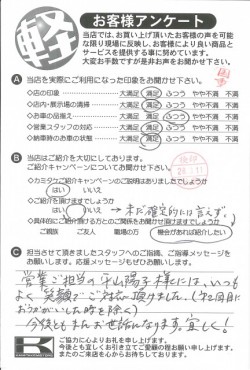 軽
お客様アンケート
当店では、お買い上げ頂いたお客様の声を可能
な限り現場に反映し、お客様により良い商品と
サービスを提供する事に努めています。
大変お手数ですが是非お声をお聞かせ下さい。
A 当店を実際にご利用になった印象をお聞かせ下さい。
◇店の印象 大満足 満足 ふつう やや不満 不満
◇店内・展示場の清掃 大満足 満足 ふつう やや不満 不満
◇お車の品揃え 大満足 満足 ふつう やや不満 不満
◇営業スタッフの対応 大満足 満足 ふつう やや不満 不満
◇納車時のお車の状態 大満足 満足 ふつう やや不満 不満
B 当店はご紹介を大切にしております。
ご紹介キャンペーンについてお聞かせ下さい。
◇カミタケご紹介キャンペーンのご説明はありましたでしょうか
はい いいえ
◇ご紹介を頂けますでしょうか
はい いいえ → まだ確定的には言えず、
◇具体的にご紹介頂ける方とのご関係をお聞かせ頂けますでしょうか
ご親族 ご友人 職場の方 機会があれば紹介したい
C 担当させて頂きましたスタッフへのご指摘、ご指導メッセージを
お願いします。応援メッセージもぜひお願いします。
営業ご担当の平山陽子様には、いつも
よく笑顔でご対応頂けました。(初回目に
おうかがいした時を除く)
今後ともまたお世話になります。宜しく!
ご協力に心よりお礼を申し上げます。
今後とも宜しくお引き立てご愛顧の程お願い申し上げます。
またのご来店を心からお待ちしております。